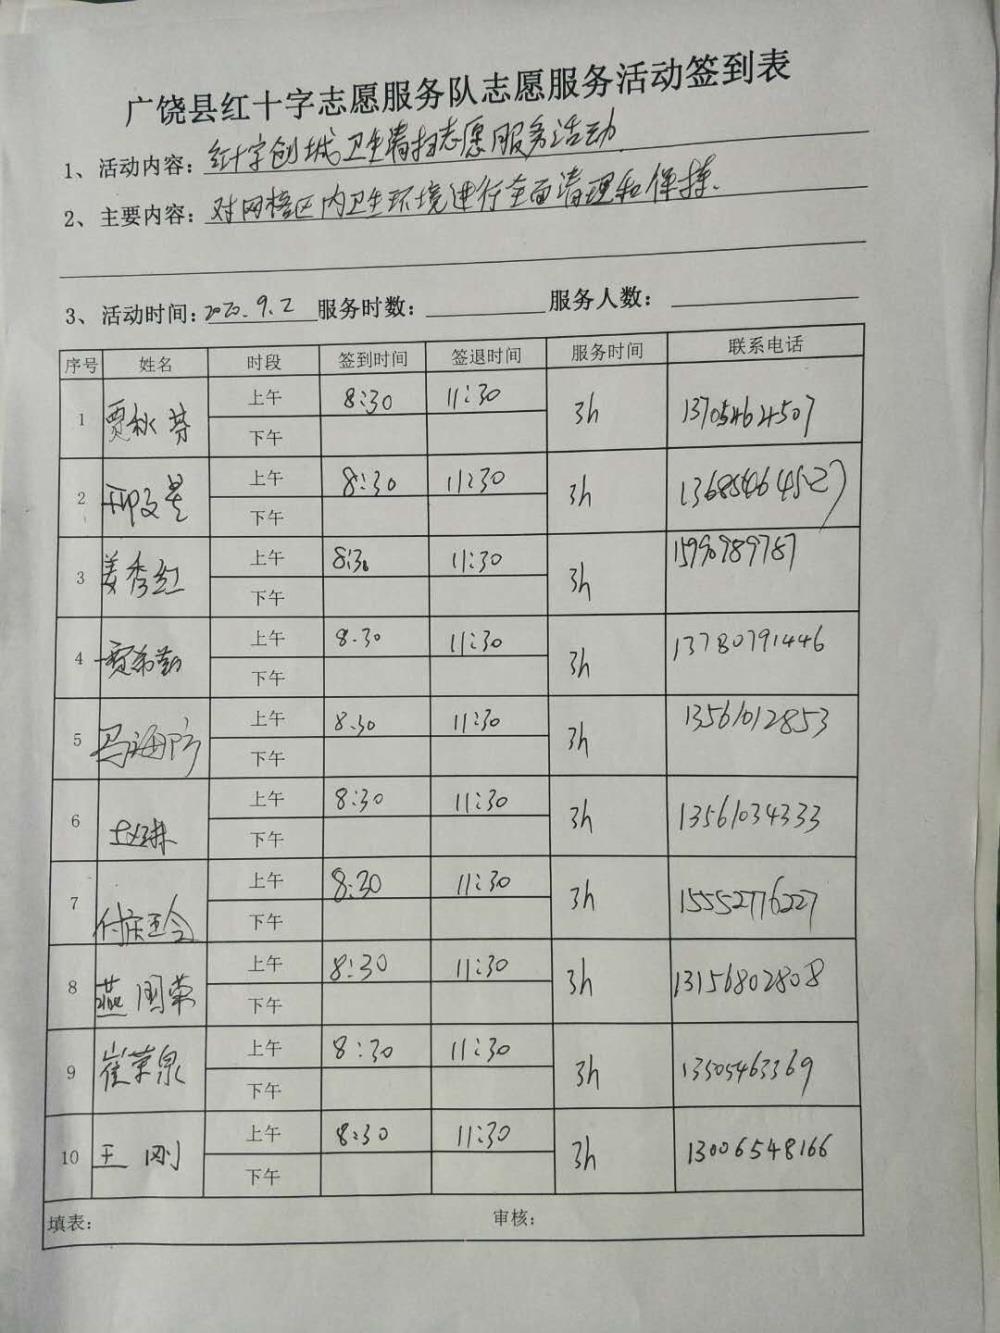 广饶县红十字志愿服务队志愿服务活动签到表
1、活动内容：红十字创城卫生清扫志愿服务活动.
2、主要内容：对网格区内卫生环境进行全面清理和保持.
3、活动时间：2020.9.2 服务时数： 服务人数：
序号 姓名 时段 签到时间 签退时间 服务时间 联系电话
1 贾秋芬 上午 8:30 11:30 3h 13705464507
下午
2 上午 8:30 11:30 3h 13685464527
下午
3 姜秀红 上午 8:30 11:30 3h 15990989787
下午
4 贾希勤 上午 8.30 11:30 3h 13780791446
下午
5 马海防 上午 8.30 11:30 3h 13561012853
下午
6 上午 8:30 11:30 3h 13561034333
下午
7 上午 8:30 11:30 3h 15552776227
下午
8 燕国荣 上午 8:30 11:30 3h 13156802808
下午
9 崔荣泉 上午 8:30 11:30 3h 13505463369
下午
10 王刚 上午 8:30 11:30 3h 13006548166
下午
填表： 审核：